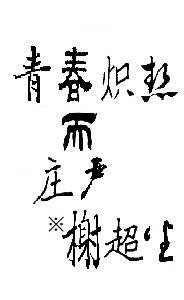 青春炽热
而
庄严
※榭超生